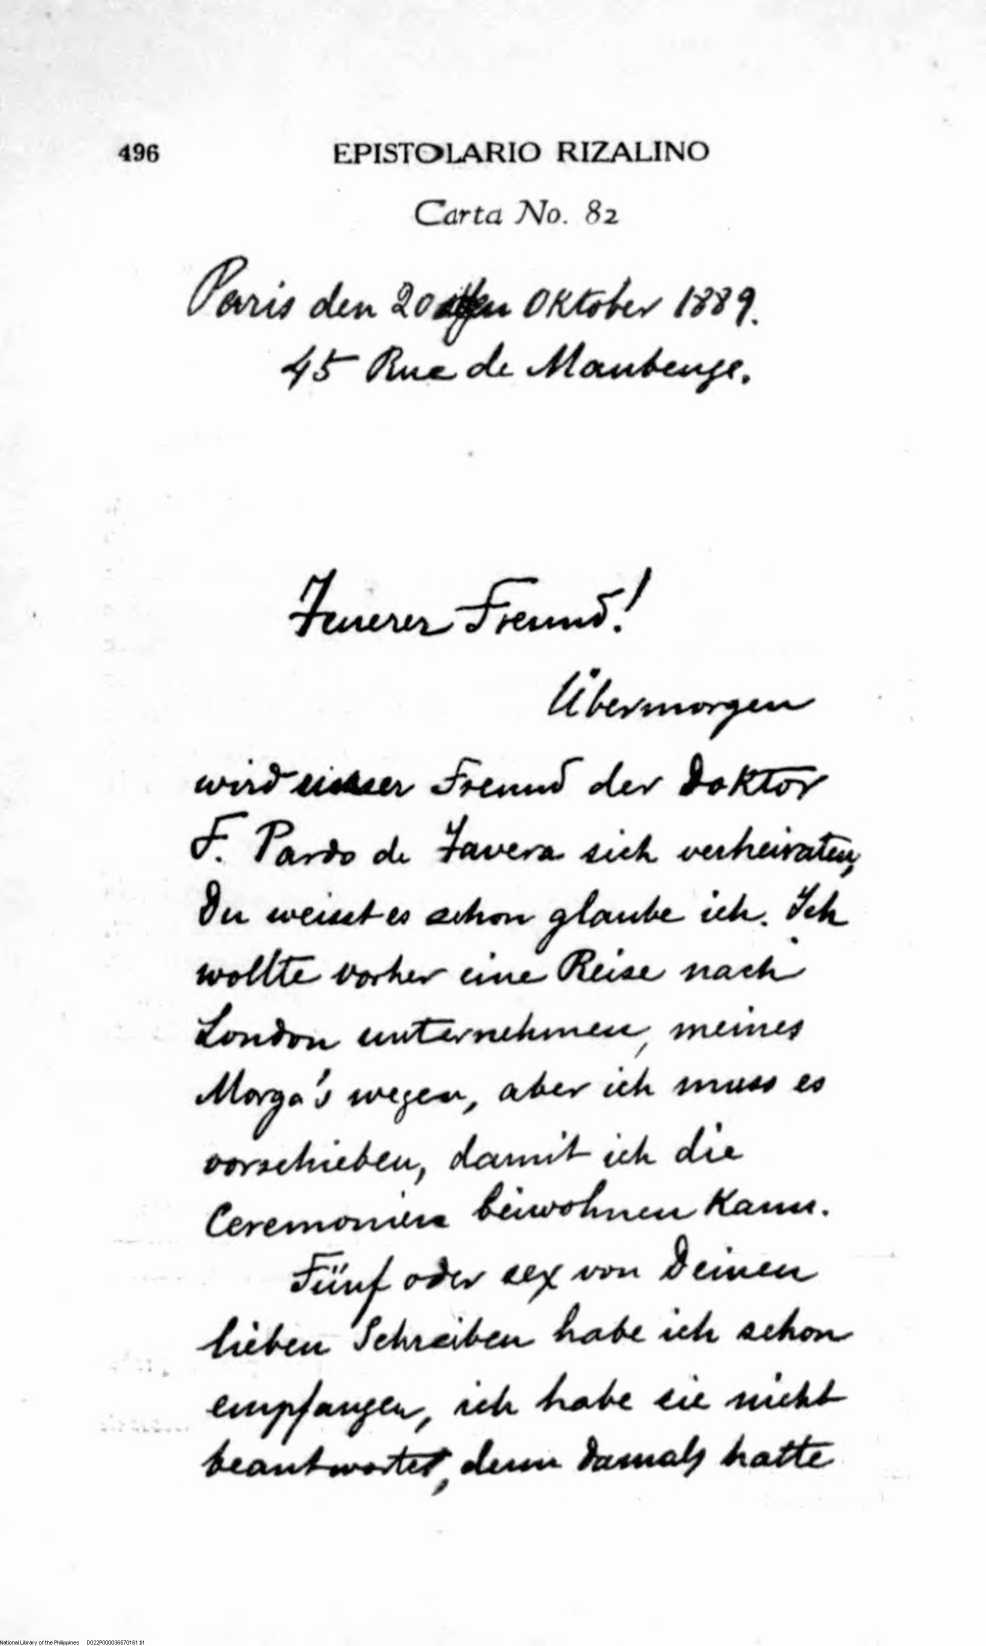 496
EPISTOLARIO RIZALINO
Carta No. 82
Paris den 20 Oktober 1889.
45 Rue de Maubeuge.
Teuerer Freund!
Übermorgen
wird unser Freund der Doktor
F. Pardo de Tavera sich verheiraten,
Du weisst es schon glaube ich. Ich
wollte vorher eine Reise nach
London unternehmen, meines
Morga's wegen, aber ich muss es
vorschieben, damit ich die
Ceremonien beiwohnen kann.
Fünf oder sex von Deinen
lieben Schreiben habe ich schon
empfangen, ich habe sie nicht
beantwortet, denn damals hatte
National Library of the Philippines